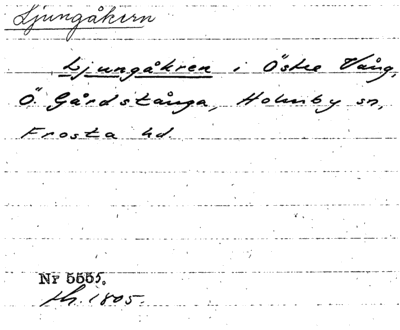 Ljungåkern
Ljungåkren i Östre Vång,
Ö. Gårdstånga, Holmby sn,
Frosta hd.
Nr 5555.
h. 1805.